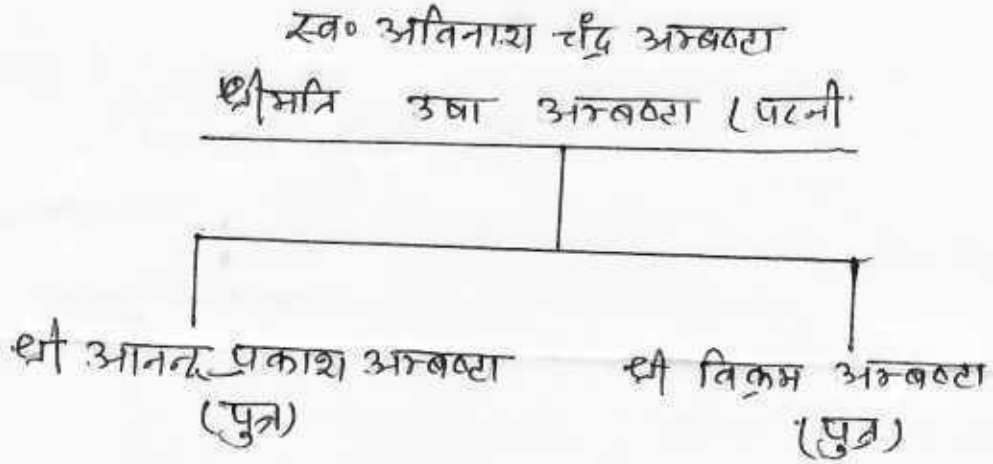 स्व० अविनाश चंद्र अम्बष्टा
श्रीमति उषा अम्बष्टा (पत्नी
श्री आनन्द प्रकाश अम्बष्टा
(पुत्र)
श्री विक्रम अम्बष्टा
(पुत्र)